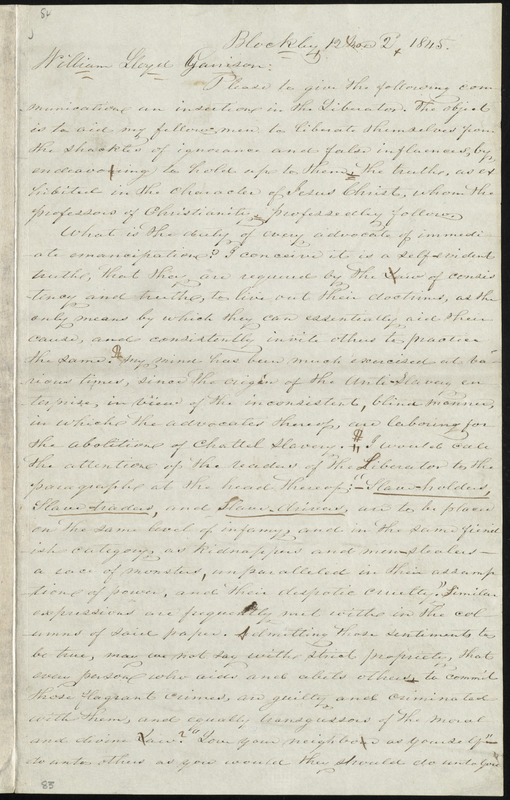 Blockley, 12 Mo 2d, 1845.
William Lloyd Garrison:
Please to give the following com
munication an insertion in the Liberator. The object
is to aid my fellow men to liberate themselves from
the shackles of ignorance and false influences, by
endeavoring to hold up to them, the truth, as ex
hibited in the character of Jesus Christ, whom the
professors of Christianity professedly follow.
What is the duty of every advocate of immedi
ate emancipation? I conceive it is a self-evident
truth, that they are required by the law of consis
tency and truth, to live out their doctrine, as the
only means by which they can essentially aid their
cause, and consistently invite others to practice
the same. My mind has been much exercised at va
rious times, since the origin of the Anti-Slavery en
terprise, in view of the inconsistent, blind manner,
in which the advocates thereof, are laboring for
the abolition of Chattel Slavery. I would call
the attention of the readers of the Liberator to the
paragraph at the head thereof; "Slave-holders,
Slave-traders, and Slave-drivers, are to be placed
on the same level of infamy, and in the same fiend
ish category, as kidnappers and men-stealers—
a race of monsters, unparalleled in their assump
tion of power, and their despotic cruelty." Similar
expressions are frequently met with in the col
umns of said paper. Admitting those sentiments to
be true, may we not say with strict propriety, that
every person who aids and abets others to commit
those flagrant crimes, are guilty and criminated
with them, and equally transgressors of the moral
and divine law? "Love your neighbor as yourself"—
do unto others as you would they should do unto you
83